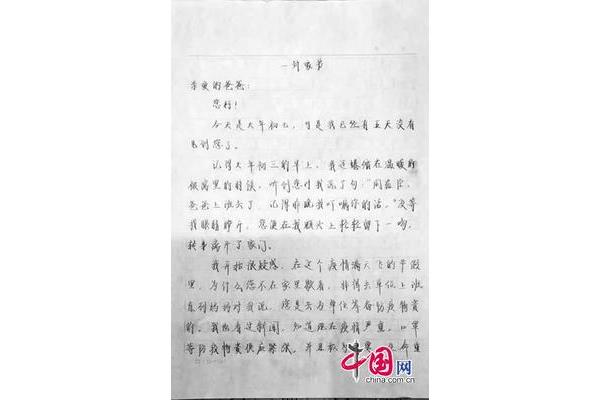 一封家书
亲爱的爸爸:
您好!
今天是大年初七,可是我已然有五天没有
见到您了。
记得大年初三的早上,我还慵懒在温暖的
被窝里的时候,听到您对我说了句:“周
爸爸上班去了,记得听妈我叮嘱你的话。”没等
我眼睛睁开,您便在我额头上轻轻留了一吻,
转身离开了家门。
我开始很疑惑,在这个疫情满天飞的寒假
里,为什么您不在家里歇着,非得去单位上班
直到妈妈对我说,您是去为单位筹备防疫物资
的。我也看过新闻,知道现在疫情严重,口罩
等防疫物资供应紧张,并且 命重
中国网
china.com.cn